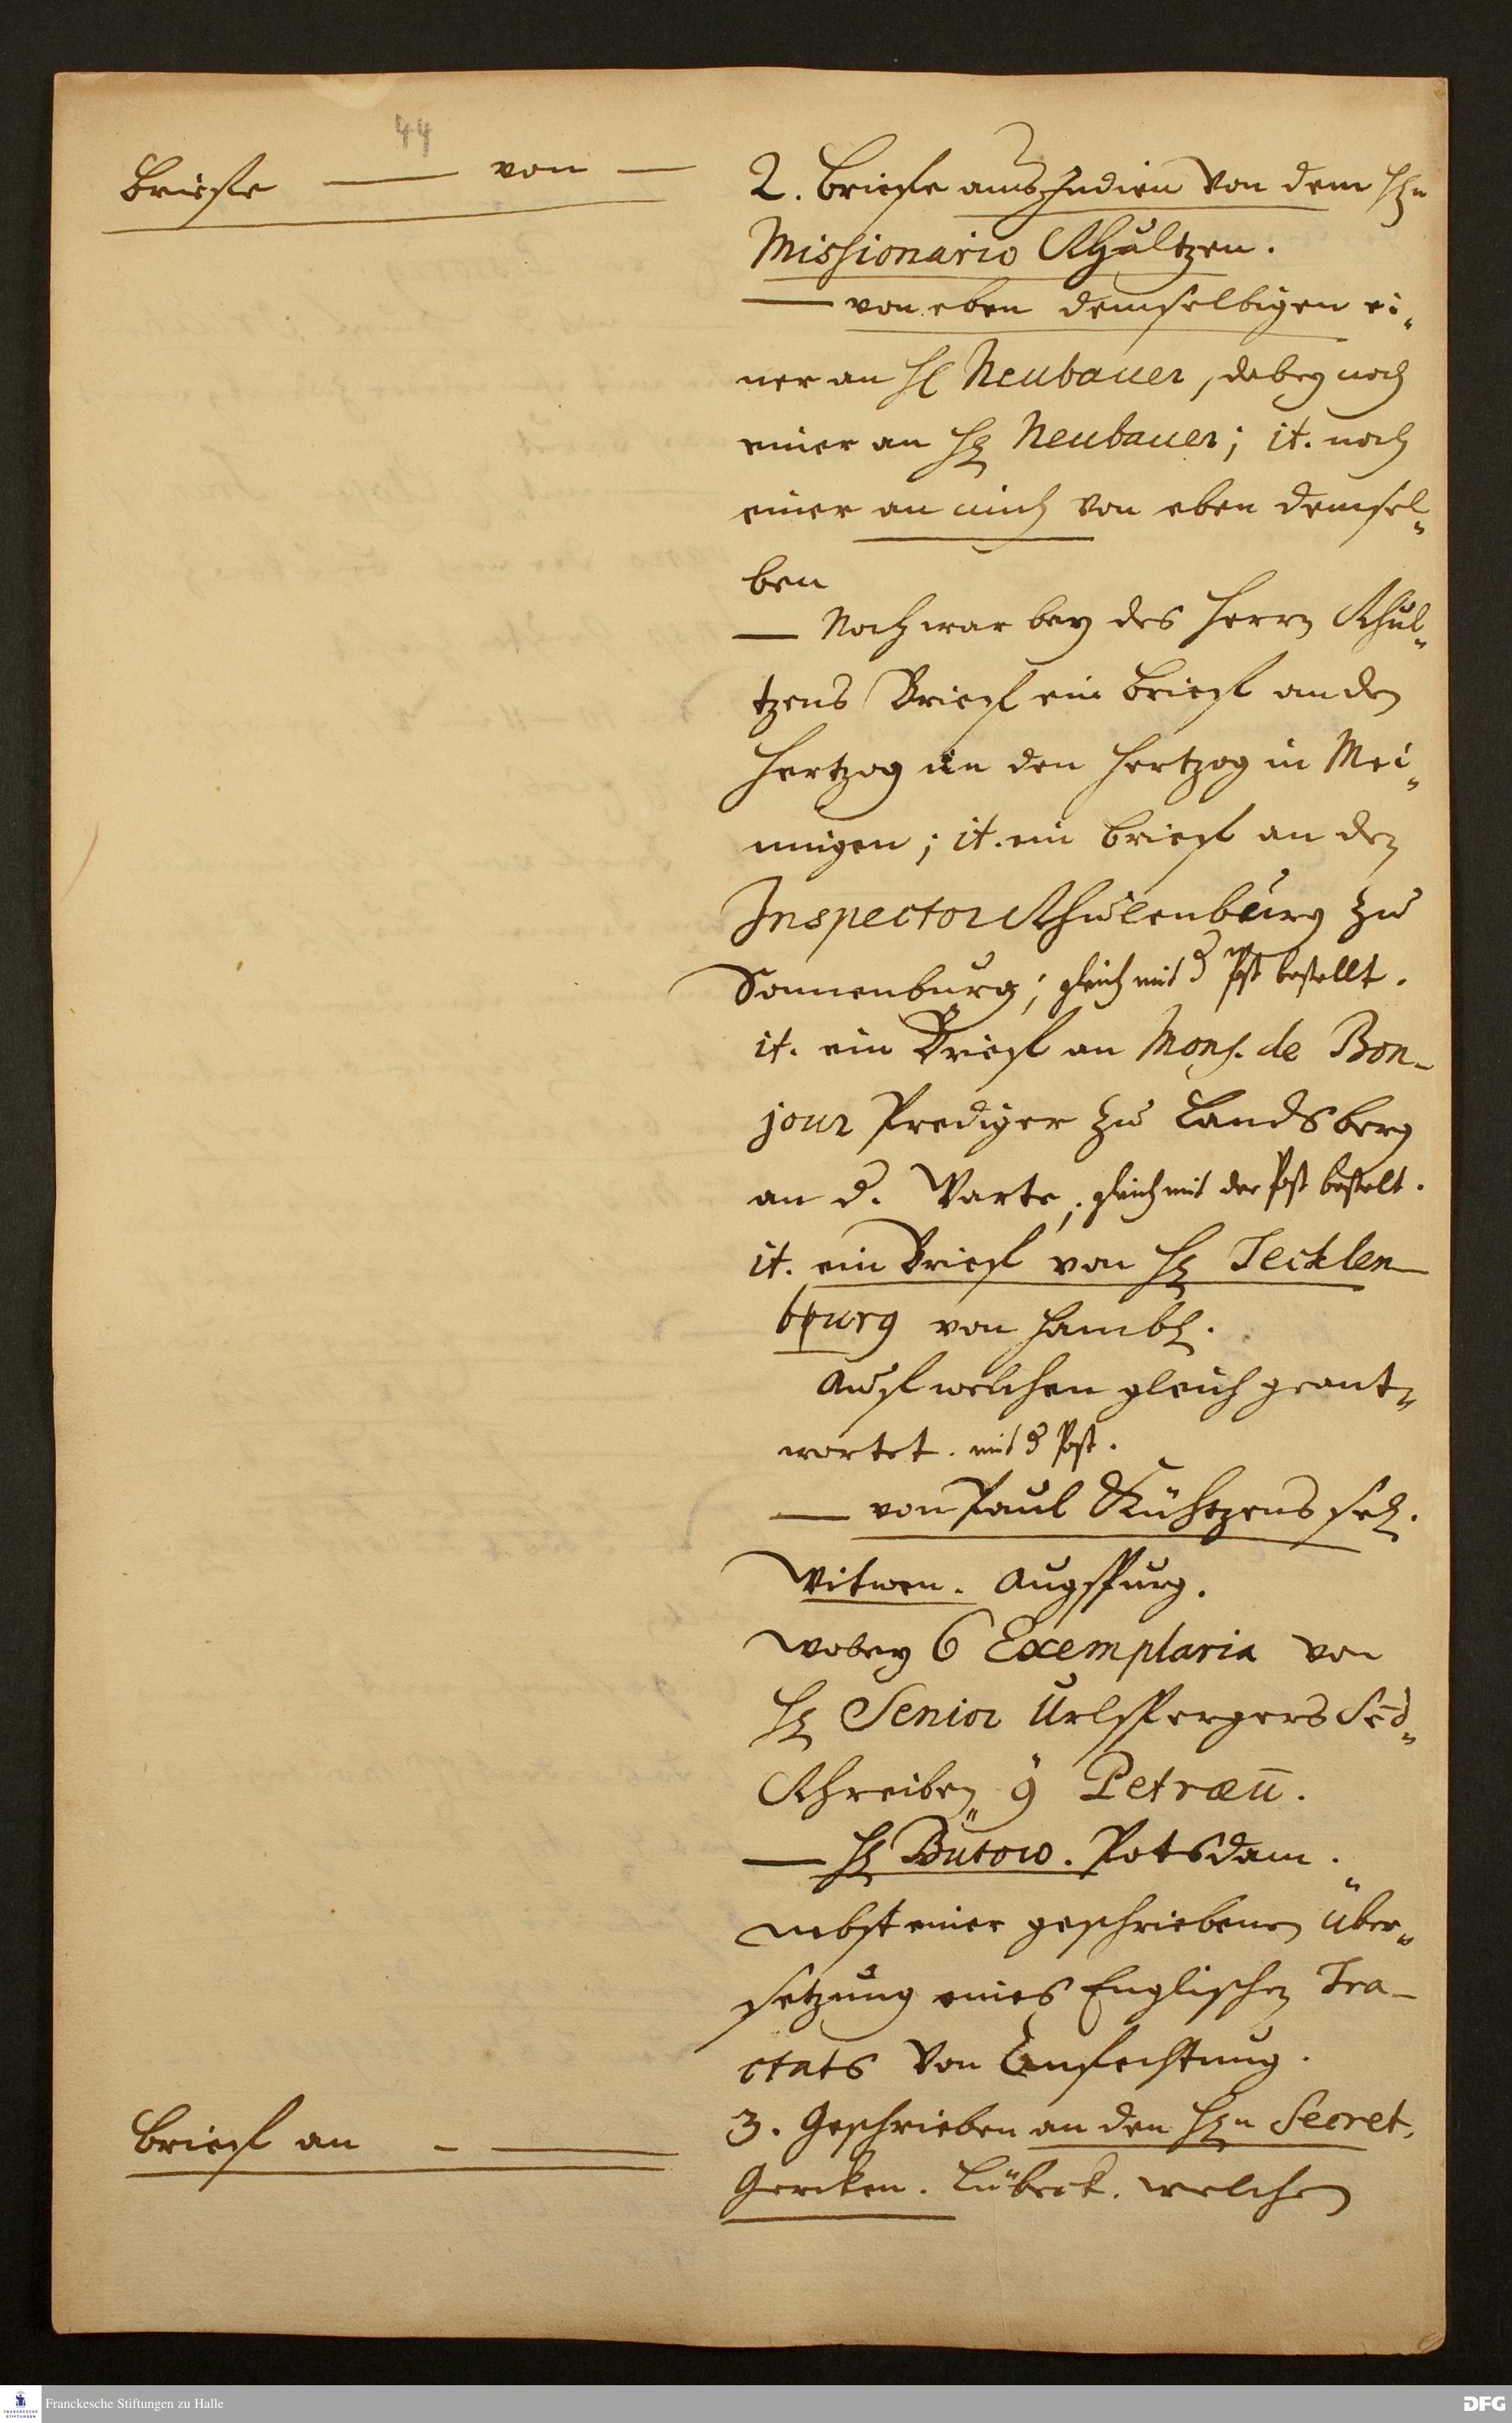 44
Briefe — von —
2. Briefe aus Indien von dem Hn
Missionario Schultzen.
— von eben demselbigen ei-
ner an H. Neubauer, dabey noch
einer an H. Neubauer; it. noch
einer an mich von eben demsel-
ben
— Noch war bey des Herrn Schul-
tzens Brief ein Brief an den
Hertzog an den Hertzog in Mei-
nigen; it. ein Brief an den
Inspector Schulenburg zu
Sonnenburg; gleich mit d Post bestellt.
it. ein Brief an Mons. de Bon-
jour Prediger zu Landsberg
an d. Warte, gleich mit der Post bestelt.
it. ein Brief von H. Tecklen-
burg von Hamb.
Auf welchen gleich geant-
wortet. mit d Post.
— von Paul Kühtzens sel.
Witwen. Augspurg.
wobey 6 Exemplaria von
H. Senior Urlspergers Sēd-
Schreiben g Petraeū.
— H. Bütow. Potsdam.
nebst einer geschriebenen Über-
setzung eines Englischen Tra-
ctats von Anfechtung.
Brief an - —
3. Geschrieben an den Hn Secret.
Gercken. Lübeck. welchen
Franckesche Stiftungen zu Halle
DFG